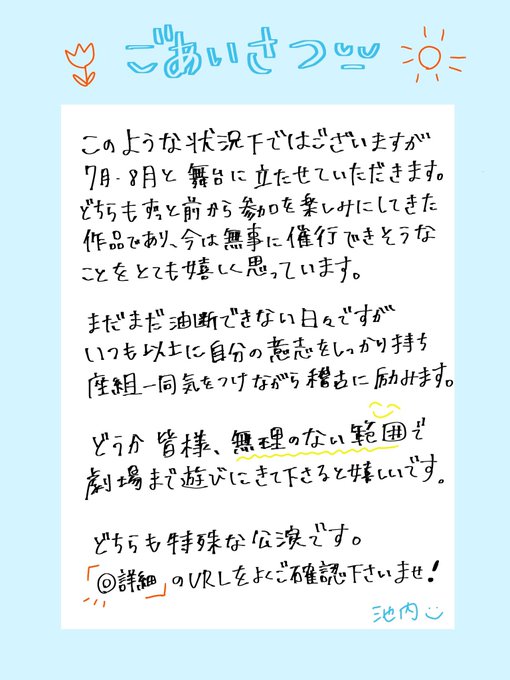 ごあいさつ
このような状況下ではございますが
7月・8月と舞台に立たせていただきます。
どちらもずっと前から参加を楽しみにしてきた
作品であり、今は無事に催行できそうな
ことをとても嬉しく思っています。
まだまだ油断できない日々ですが
いつも以上に自分の意志をしっかり持ち
座組一同気をつけながら稽古に励みます。
どうか皆様、無理のない範囲で
劇場まで遊びにきて下さると嬉しいです。
どちらも特殊な公演です。
「◎詳細」のURLをよくご確認下さいませ!
池内